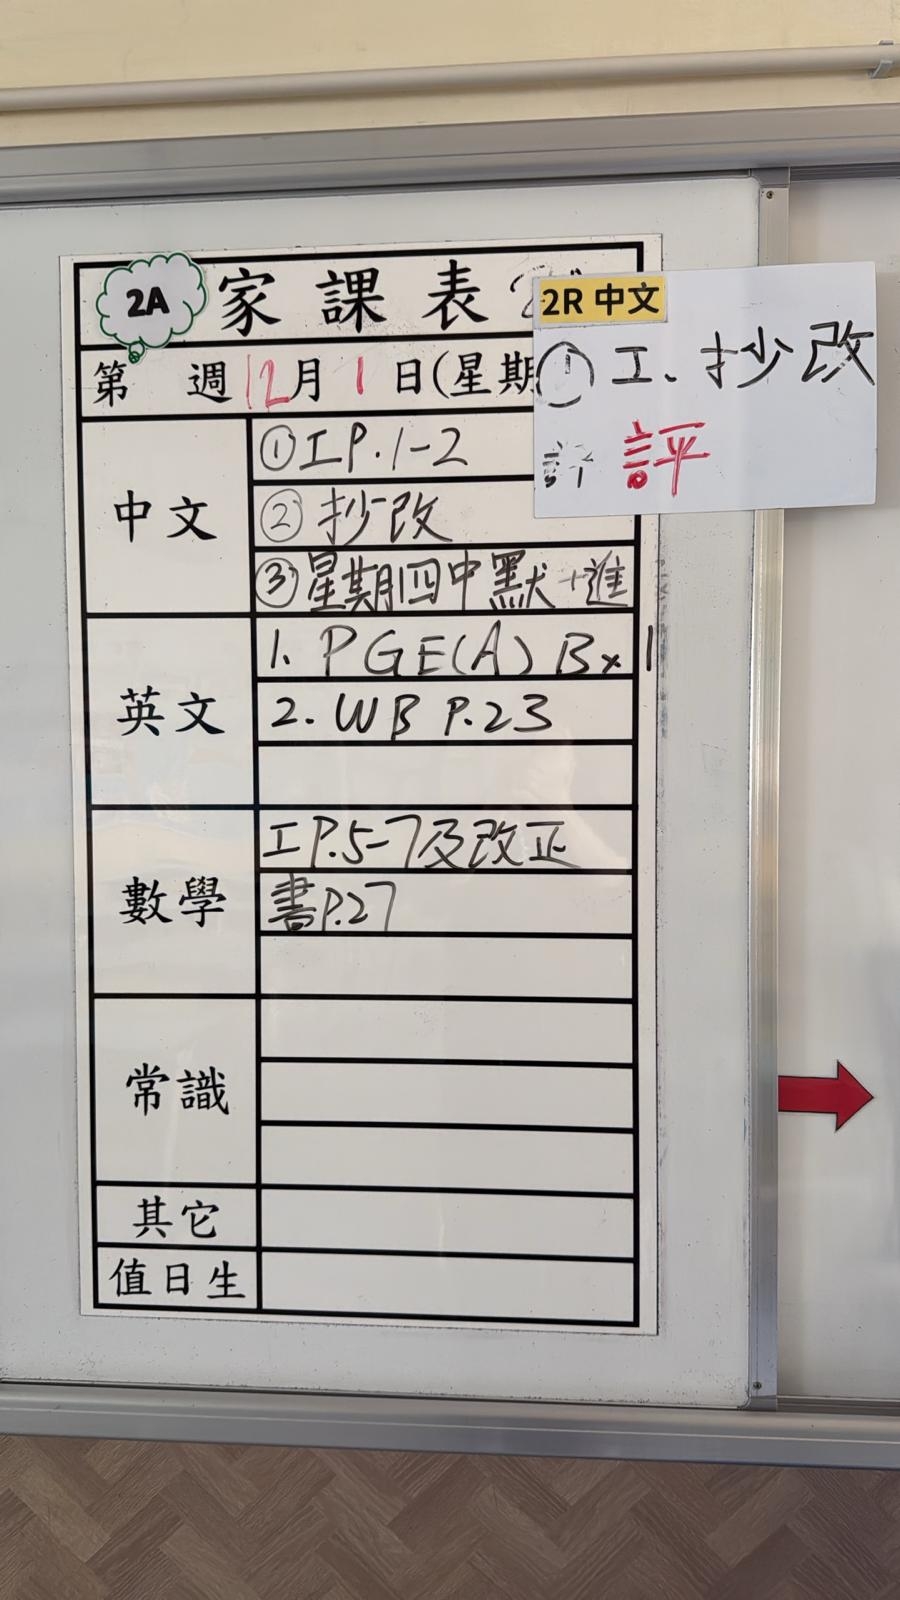 2A
家課表
2R 中文
第 週 12月 1日(星期
① 工. 抄改
評
中文
①工P.1-2
②抄改
③星期四中默+進
英文
1. PGE(A) B×1
2. WB P.23
數學
工P.5-7及改正
書P.27
常識
其它
值日生